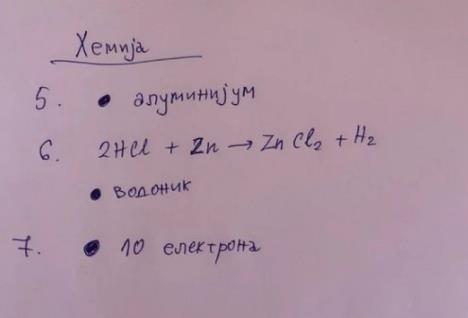 Хемија
5. • алуминијум
6. 2HCl + Zn → ZnCl₂ + H₂
• водоник
7. • 10 електрона